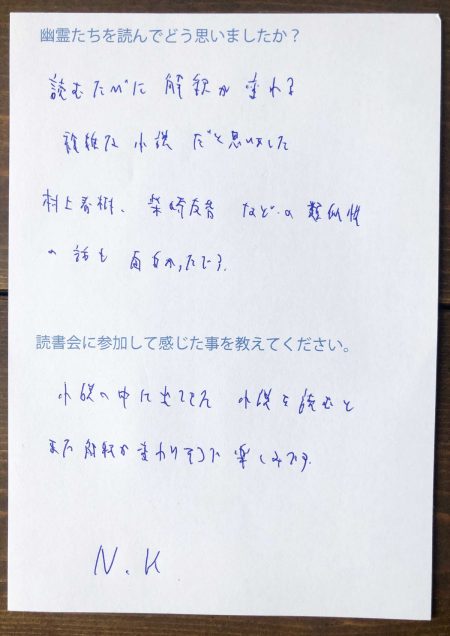 幽霊たちを読んでどう思いましたか？
読むたびに 解釈が 変わる
複雑な 小説 だと思いました
村上春樹、柴崎友香 などの 類似性
の 話も 面白かったです。
読書会に参加して感じた事を教えてください。
小説の中に出てきた 小説を 読むと
また 解釈が 変わりそうで 楽しみです。
N.K